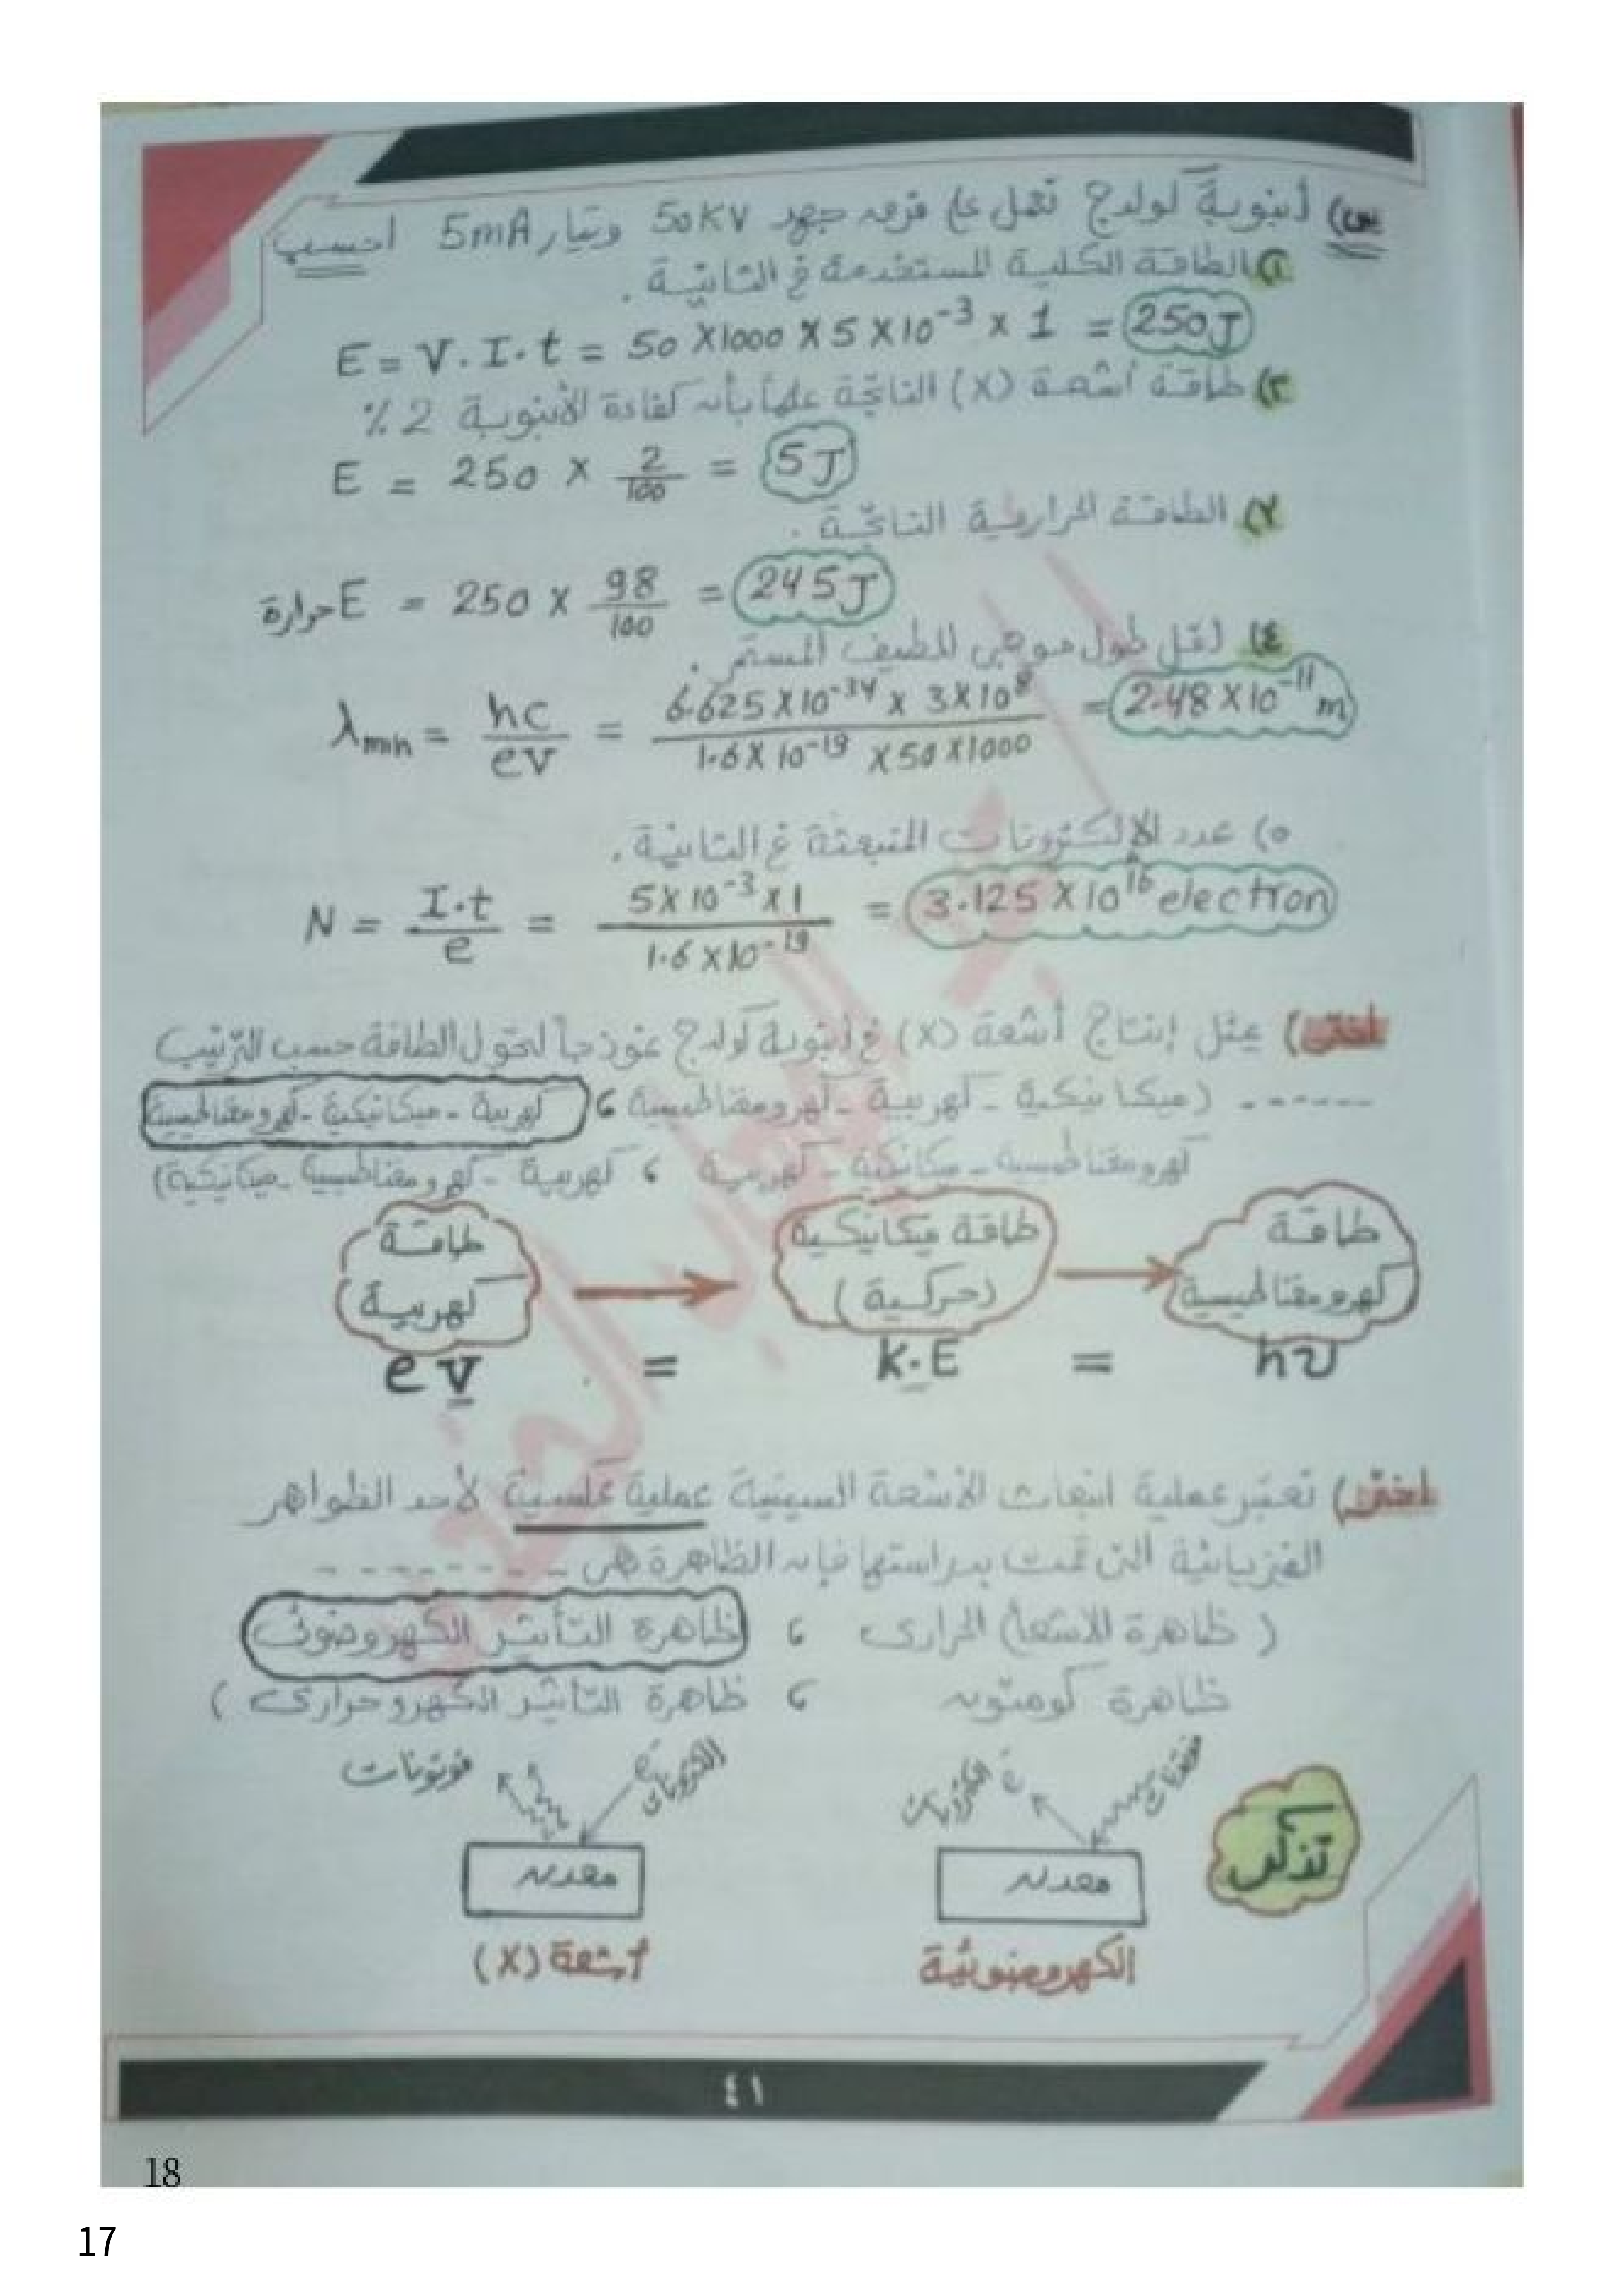 س) أنبوبة كولدج تعمل على فرق جهد 50KV وتيار 5mA احسب
١) الطاقة الكلية المستخدمة في الثانية .
E = V . I . t = 50 X1000 X 5 X10⁻³ x 1 = 250J
٢) طاقة أشعة (X) الناتجة علماً بأن كفاءة الأنبوبة 2 ٪
E = 250 X 2/100 = 5J
٣) الطاقة الحرارية الناتجة .
E حرارة = 250 X 98/100 = 245J
٤) أقل طول موجى للطيف المستمر .
λmin = hc/ev = 6.625 X10⁻³⁴ x 3X10⁸ / 1.6X10⁻¹⁹ X50 X1000 = 2.48 X10⁻¹¹ m
٥) عدد الإلكترونات المنبعثة في الثانية .
N = I.t/e = 5X10⁻³ X1 / 1.6 X10⁻¹⁹ = 3.125 X10¹⁶ electron
اختر) يمثل إنتاج أشعة (X) في أنبوبة كولدج نموذجاً لتحول الطاقة حسب الترتيب
------ (ميكانيكية - كهربية - كهرومغناطيسية ، كهربية - ميكانيكية - كهرومغناطيسية
كهرومغناطيسية - ميكانيكية - كهربية ، كهربية - كهرومغناطيسية - ميكانيكية)
طاقة كهربية → طاقة ميكانيكية (حركية) → طاقة كهرومغناطيسية
eV = K.E = hν
اختر) تعتبر عملية انبعاث الأشعة السينية عملية عكسية لأحد الظواهر
الفيزيائية التى تمت بدراستها فإن الظاهرة هى --------
( ظاهرة الانبعاث الحرارى ، ظاهرة التأثير الكهروضوئى
ظاهرة كومتون ، ظاهرة التأثير الكهروحرارى )
تذكر
فوتونات e⁻ الكترونات
فوتونات e⁻ الكترونات
معدن معدن
الكهروضوئية أشعة (X)
٤١
18
17